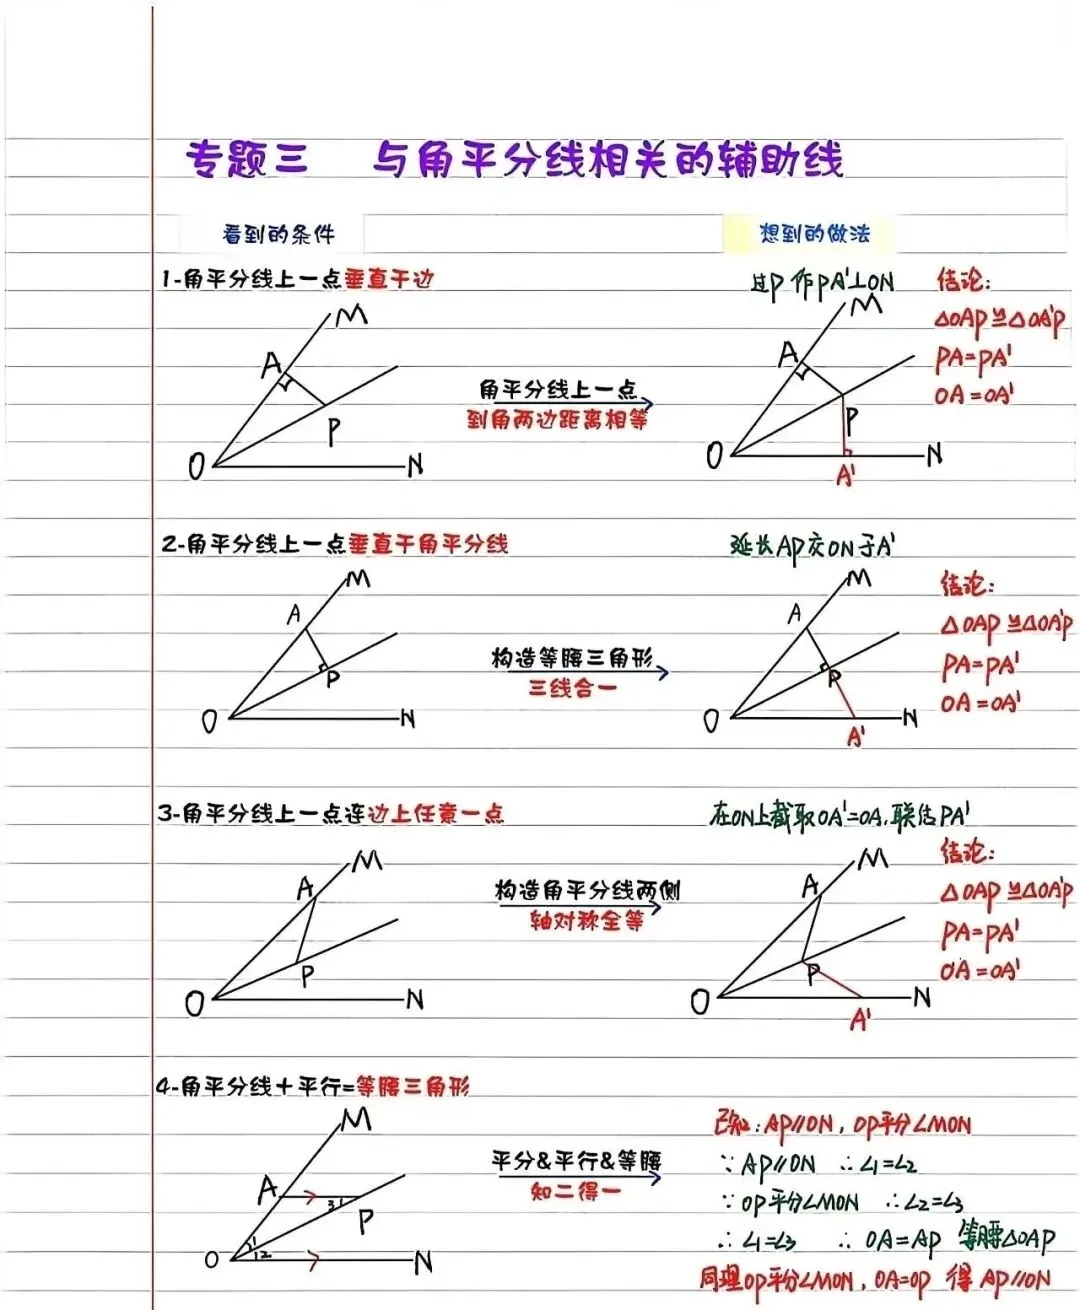 专题三 与角平分线相关的辅助线
看到的条件
想到的做法
1-角平分线上一点垂直于边
过P作PA'⊥ON
结论:
△OAP≌△OA'P
PA=PA'
OA=OA'
M
A
P
O
N
角平分线上一点
到角两边距离相等
M
A
P
O
N
A'
2-角平分线上一点垂直于角平分线
延长AP交ON于A'
结论:
△OAP≌△OA'P
PA=PA'
OA=OA'
M
A
P
O
N
构造等腰三角形
三线合一
M
A
P
O
N
A'
3-角平分线上一点连边上任意一点
在ON上截取OA'=OA,联结PA'
结论:
△OAP≌△OA'P
PA=PA'
OA=OA'
M
A
P
O
N
构造角平分线两侧
轴对称全等
M
A
P
O
N
A'
4-角平分线+平行=等腰三角形
M
A
3 1
P
1
2
O
N
平分&平行&等腰
知二得一
已知:AP//ON,OP平分∠MON
∵AP//ON ∴∠1=∠2
∵OP平分∠MON ∴∠2=∠3
∴∠1=∠3 ∴OA=AP 等腰△OAP
同理OP平分∠MON,OA=OP 得AP//ON